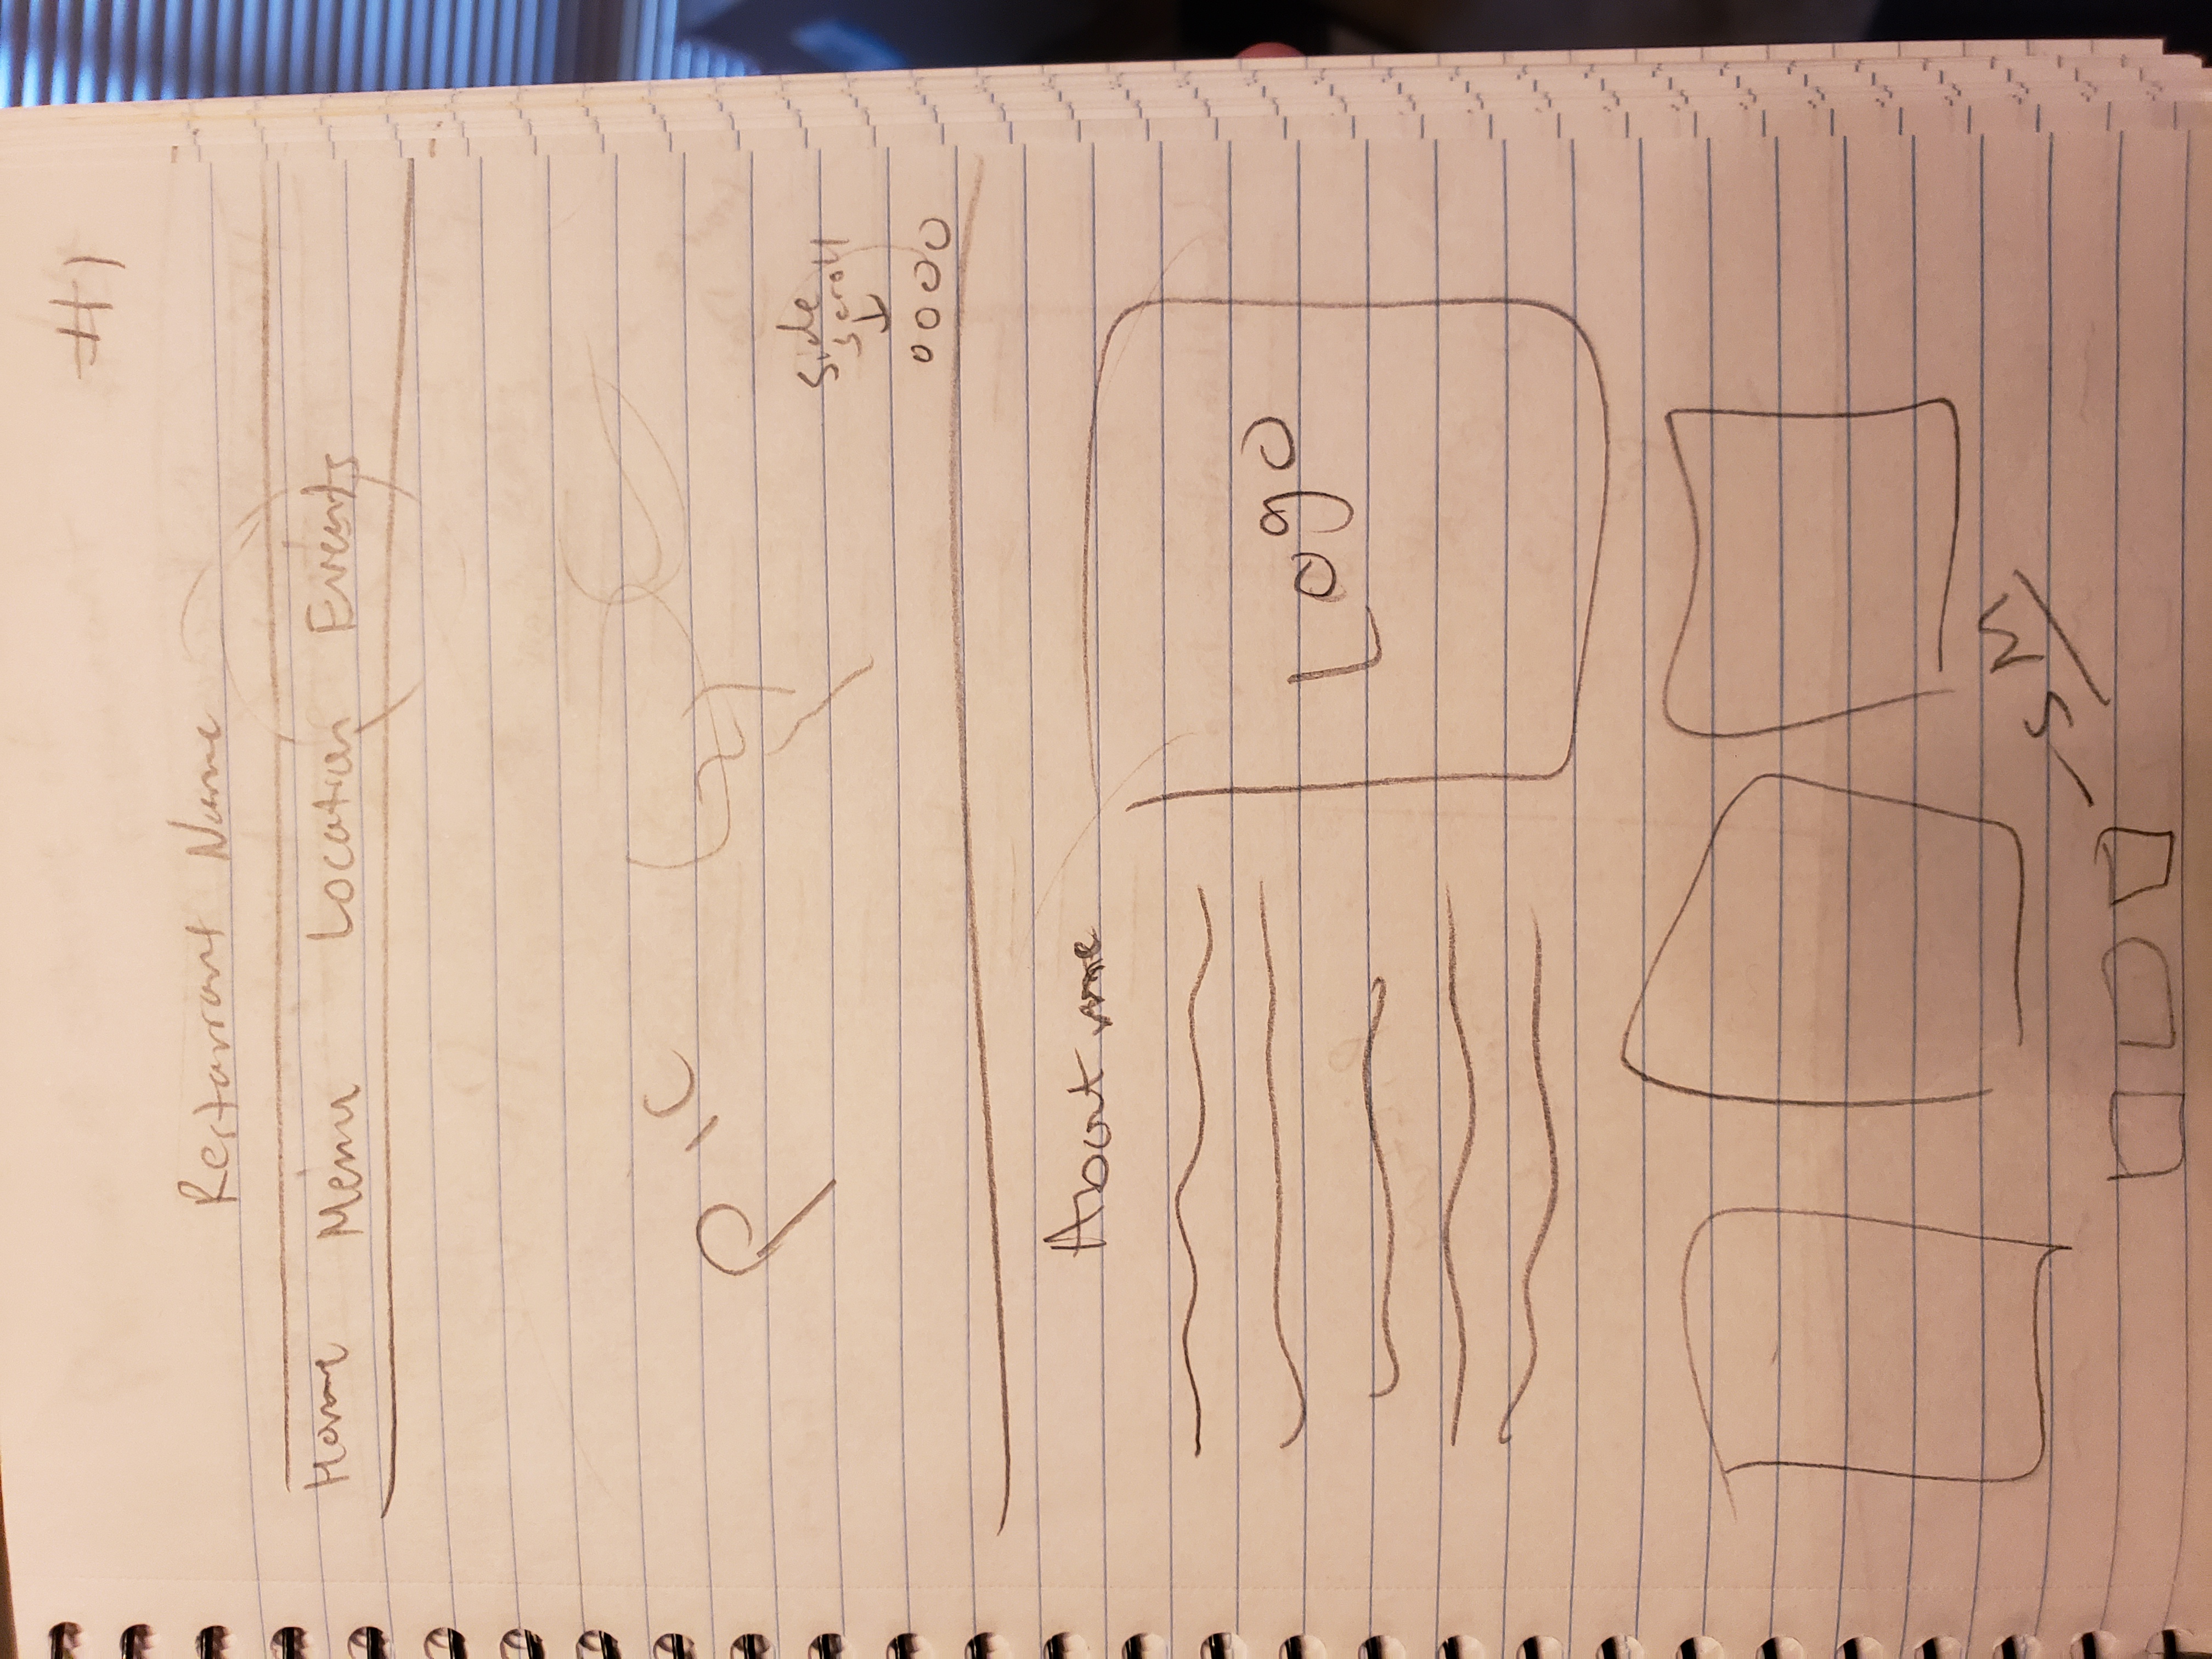 #1
Restaurant Name
Home Menu Location Events
Pic
Side
Scroll
About me
Logo
SM